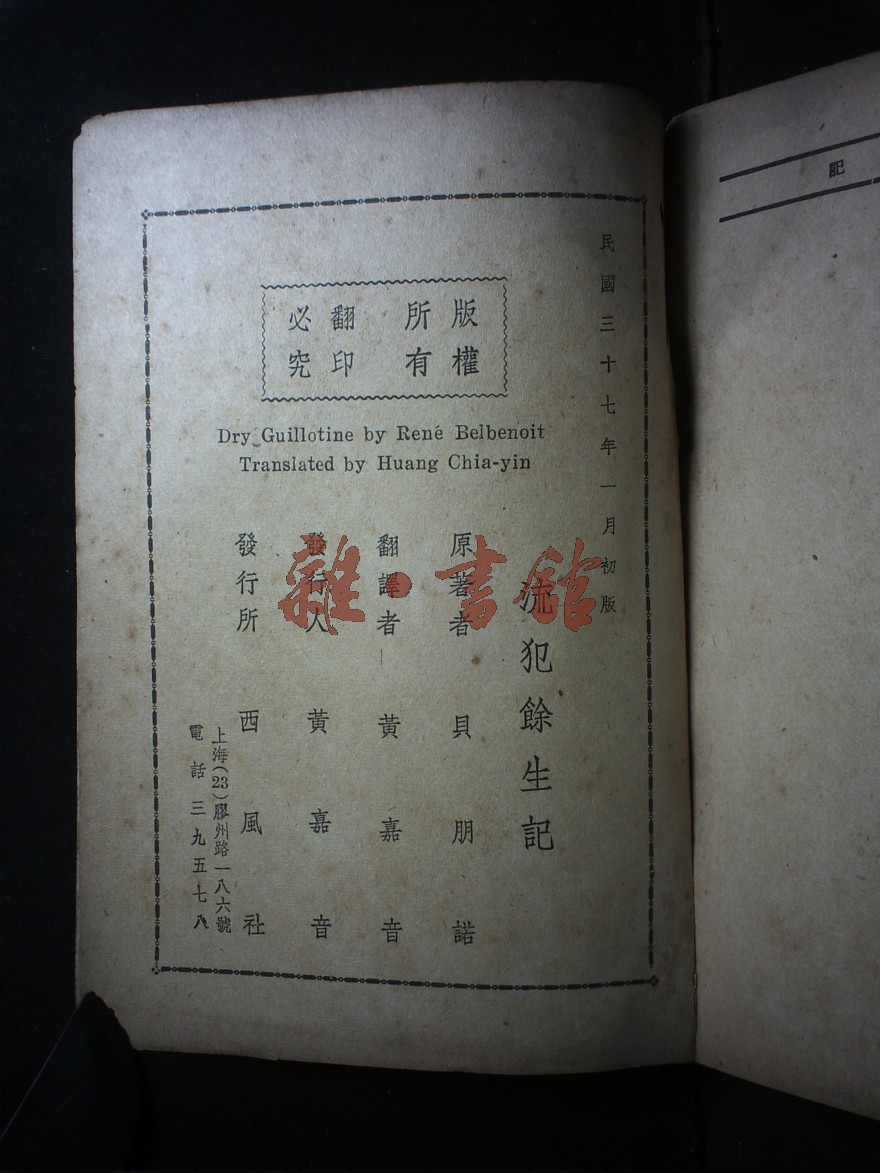 記
民國三十七年一月初版
版權所有
翻印必究
Dry Guillotine by René Belbenoit
Translated by Huang Chia-yin
流犯餘生記
原著者 貝朋諾
翻譯者 黃嘉音
發行人 黃嘉音
發行所 西風社
上海(23)膠州路一八六號
電話三九五七八
雜·書館